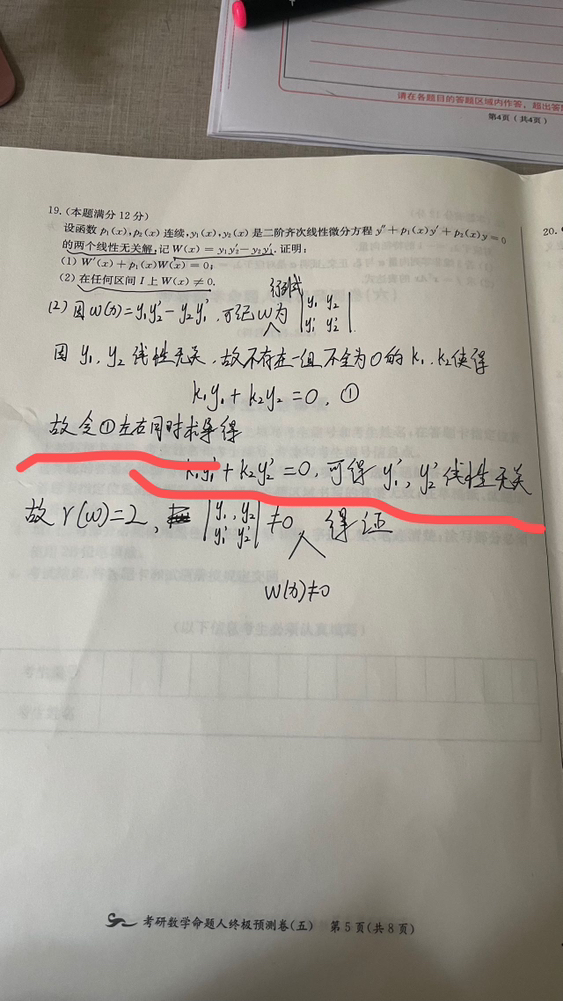 请在各题目的答题区域内作答，超出答
第4页（共4页）
19.（本题满分 12 分）
设函数 p₁(x), p₂(x) 连续, y₁(x), y₂(x) 是二阶齐次线性微分方程 y″+p₁(x)y′+p₂(x)y=0
20.
的两个线性无关解, 记 W(x)=y₁y₂′−y₂y₁′. 证明:
(1) W′(x)+p₁(x)W(x)=0;
(2) 在任何区间 I 上 W(x)≠0.
行列式
(2) 因 W(x)=y₁y₂′−y₂y₁′, 可记 W 为 |y₁ y₂
y₁′ y₂′|
因 y₁, y₂ 线性无关, 故不存在一组不全为0的 k₁, k₂ 使得
k₁y₁+k₂y₂=0, ①
故令①左右同时求导得
k₁y₁′+k₂y₂′=0, 可得 y₁′, y₂′ 线性无关
故 r(W)=2, |y₁, y₂
y₁′ y₂′| ≠0 得证
W(x)≠0
（以下信息考生必须认真填写）
考生编号
考生姓名
考研数学命题人终极预测卷(五) 第 5 页(共 8 页)